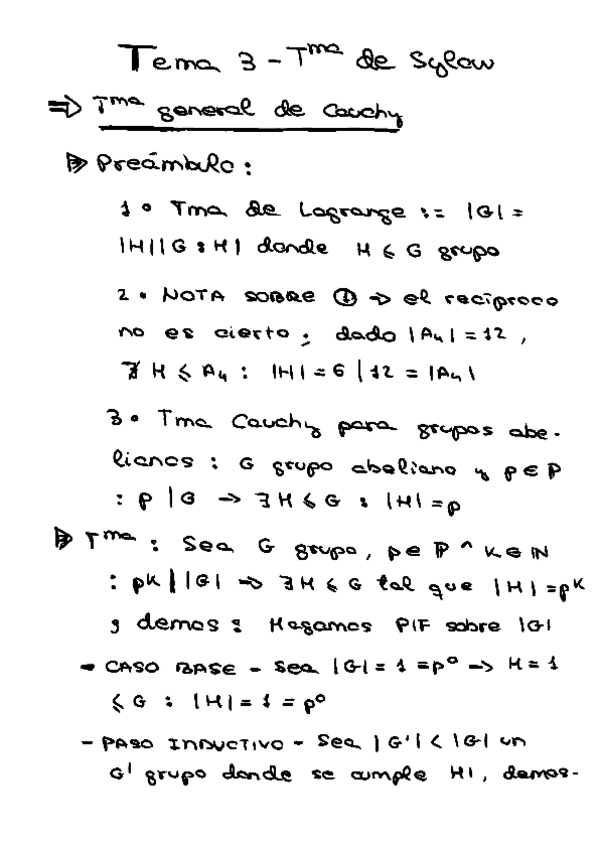 Tema 3 - Tma de Sylow
⇒ Tma general de Cauchy
Preámbulo:
1. Tma de Lagrange := |G| =
|H||G:H| donde H ≤ G grupo
2. NOTA SOBRE ① → el recíproco
no es cierto; dado |A4| = 12,
∄ H ≤ A4 : |H| = 6 | 12 = |A4|
3. Tma Cauchy para grupos abe-
lianos : G grupo abeliano y p ∈ P
: p | G → ∃ H ≤ G : |H| = p
Tma : Sea G grupo, p ∈ P ^ K ∈ N
: pK | |G| → ∃ H ≤ G tal que |H| = pK
; demos: Hagamos PIF sobre |G|
- CASO BASE - Sea |G| = 1 = p0 → H = 1
≤ G : |H| = 1 = p0
- PASO INDUCTIVO - Sea |G'| < |G| un
G' grupo donde se cumple HI, demos-